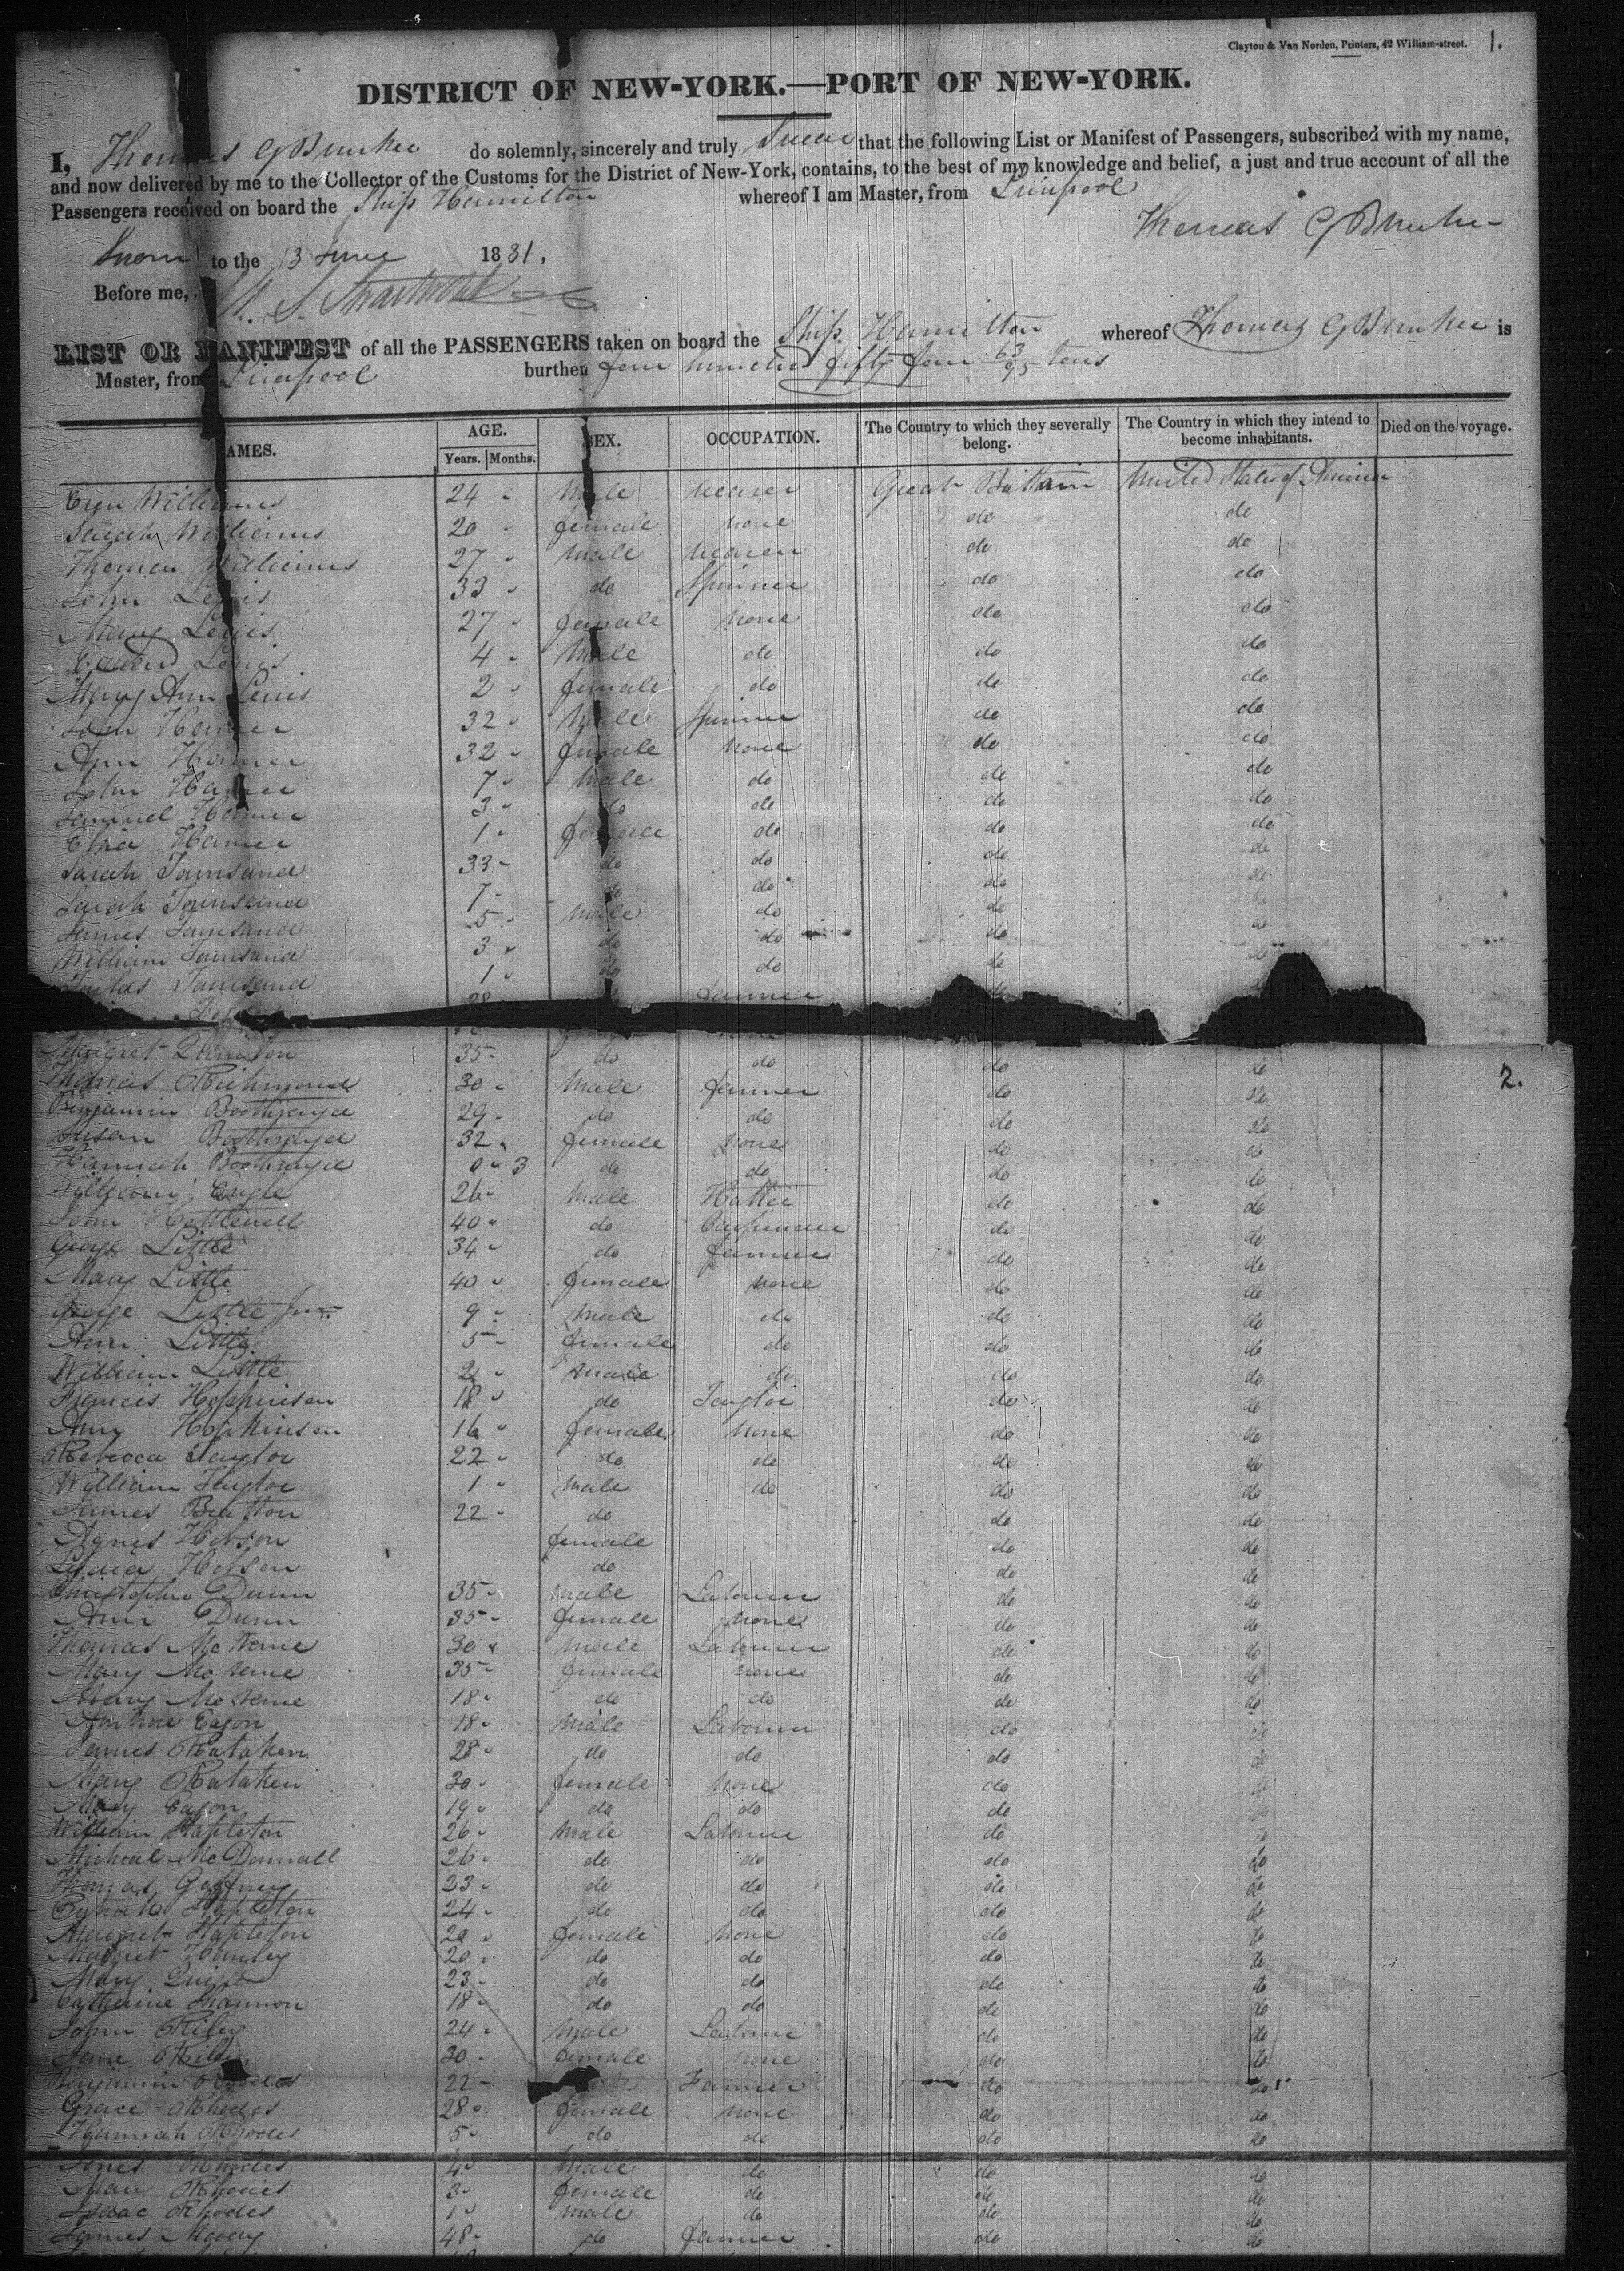 Clayton & Van Norden, Printers, 42 William-street. 1.
DISTRICT OF NEW-YORK.—PORT OF NEW-YORK.
I, Thomas G Bunker do solemnly, sincerely and truly Swear that the following List or Manifest of Passengers, subscribed with my name,
and now delivered by me to the Collector of the Customs for the District of New-York, contains, to the best of my knowledge and belief, a just and true account of all the
Passengers received on board the Ship Hamilton whereof I am Master, from Liverpool
Thomas G Bunker
Sworn to the 13 June 1831.
Before me,
LIST OR MANIFEST of all the PASSENGERS taken on board the Ship Hamilton whereof Thomas G Bunker is
Master, from Liverpool burthen four hundred fifty four 63/95 tons
NAMES. AGE. SEX. OCCUPATION. The Country to which they severally belong. The Country in which they intend to become inhabitants. Died on the voyage.
Years. Months.
Williams 24 " Male Weaver Great Brittain United States of America
Sarah Williams 20 " female None do do
Thomas Williams 27 " Male Weaver do do
John Lewis 33 " do Spinner do do
Mary Lewis 27 " female None do do
Edward Lewis 4 " Male do do do
Mary Ann Lewis 2 " female do do do
John Hamer 32 " Male Spinner do do
Ann Hamer 32 " female None do do
John Hamer 7 " Male do do do
Samuel Hamer 3 " do do do do
Eliza Hamer 1 " female do do do
Sarah Townsend 33 " do do do do
Sarah Townsend 7 " do do do do
James Townsend 5 " Male do do do
William Townsend 3 " do do do do
Townsend 1 " do do do do
28 Farmer do
Margret 35 " do do do do
2.
Thomas Richmond 30 " Male Farmer do do
Benjamin Boothroyd 29 " do do do do
Susan Boothroyd 32 " female None do do
Hannah Boothroyd 0 " 3 do do do do
William Engle 26 " Male Hatter do do
John Kettlewell 40 " do Carpenter do do
George Little 34 " do Farmer do do
Mary Little 40 " female None do do
George Little Junr 9 " Male do do do
Ann Little 5 " female do do do
William Little 2 " Male do do do
Francis Hopkinson 18 " do Taylor do do
Amy Hopkinson 16 " female None do do
Rebecca Taylor 22 " do do do do
William Taylor 1 " Male do do do
James Bratton 22 " do do do
Agnes Hobson female do do
Lydia Hobson do do do
Christopher Dunn 35 " Male Labourer do do
Ann Dunn 35 " female None do do
Thomas 30 " Male Labourer do do
Mary 35 " female None do do
Mary 18 " do do do do
Eagon 18 " Male Labourer do do
James Rataken 28 " do do do do
Mary Rataken 30 " female None do do
Mary Eagon 19 " do do do do
William Stapleton 26 " Male Labourer do do
Micheal McDonnall 26 " do do do do
Thomas Gaffney 23 " do do do do
Stapleton 24 " do do do do
Margret Stapleton 20 " female None do do
Margret 20 " do do do do
Mary 23 " do do do do
Catherine Shannon 18 " do do do do
John Riley 24 " Male Labourer do do
Jane Riley 30 " female None do do
Benjamin Rhodes 22 " Farmer do do
Grace Rhodes 28 " female None do do
Hannah Rhodes 5 " do do do do
Rhodes 4 " Male do do do
Mary Rhodes 3 " female do do do
Isaac Rhodes 1 " Male do do do
James Moody 48 " do Farmer do do